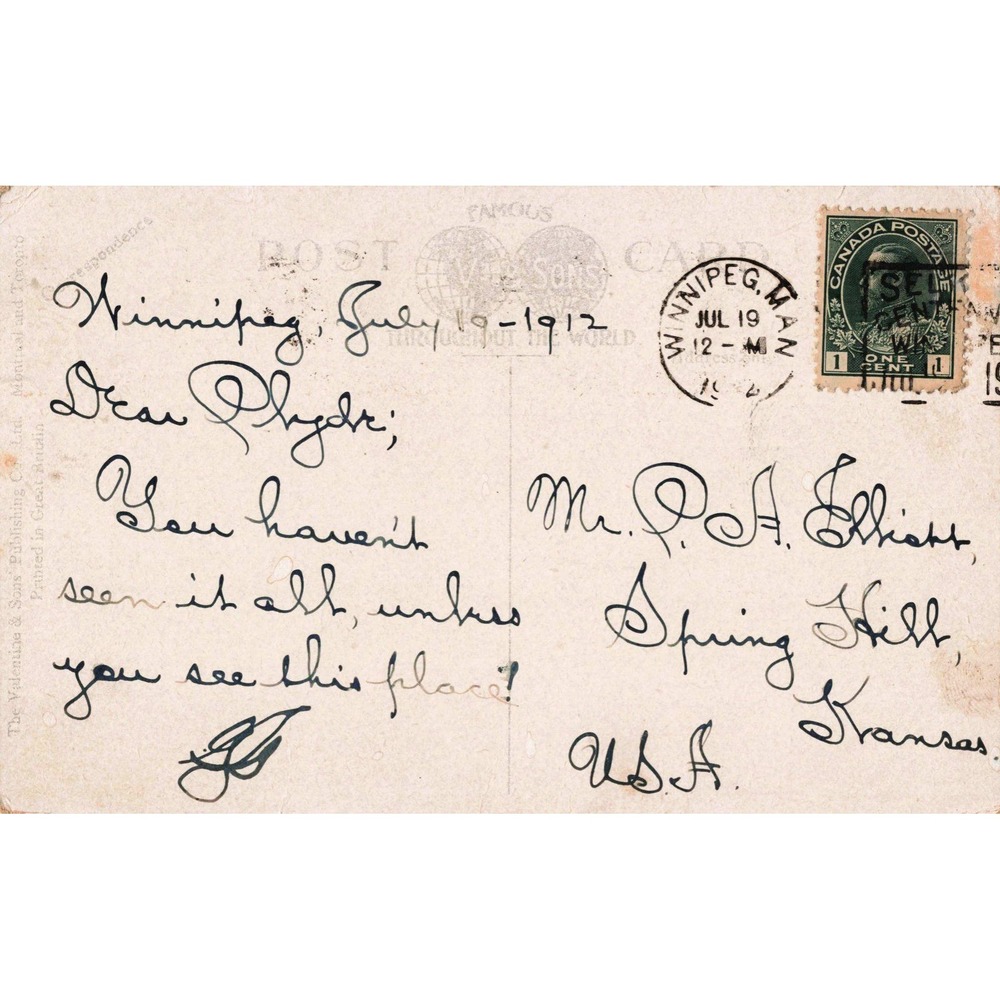 FAMOUS
POST CARD
SONS
THROUGHOUT THE WORLD
Correspondence
The Valentine & Sons' Publishing Co., Ltd. Montreal and Toronto
Printed in Great Britain
Winnipeg, July 19-1912
Dear
You haven't
seen it all, unless
you see this place!
WINNIPEG, MAN
JUL 19
12 - M
CANADA POSTAGE
1 ONE CENT 1
Mr. P. A. Elliott,
Spring Hill,
Kansas.
U.S.A.